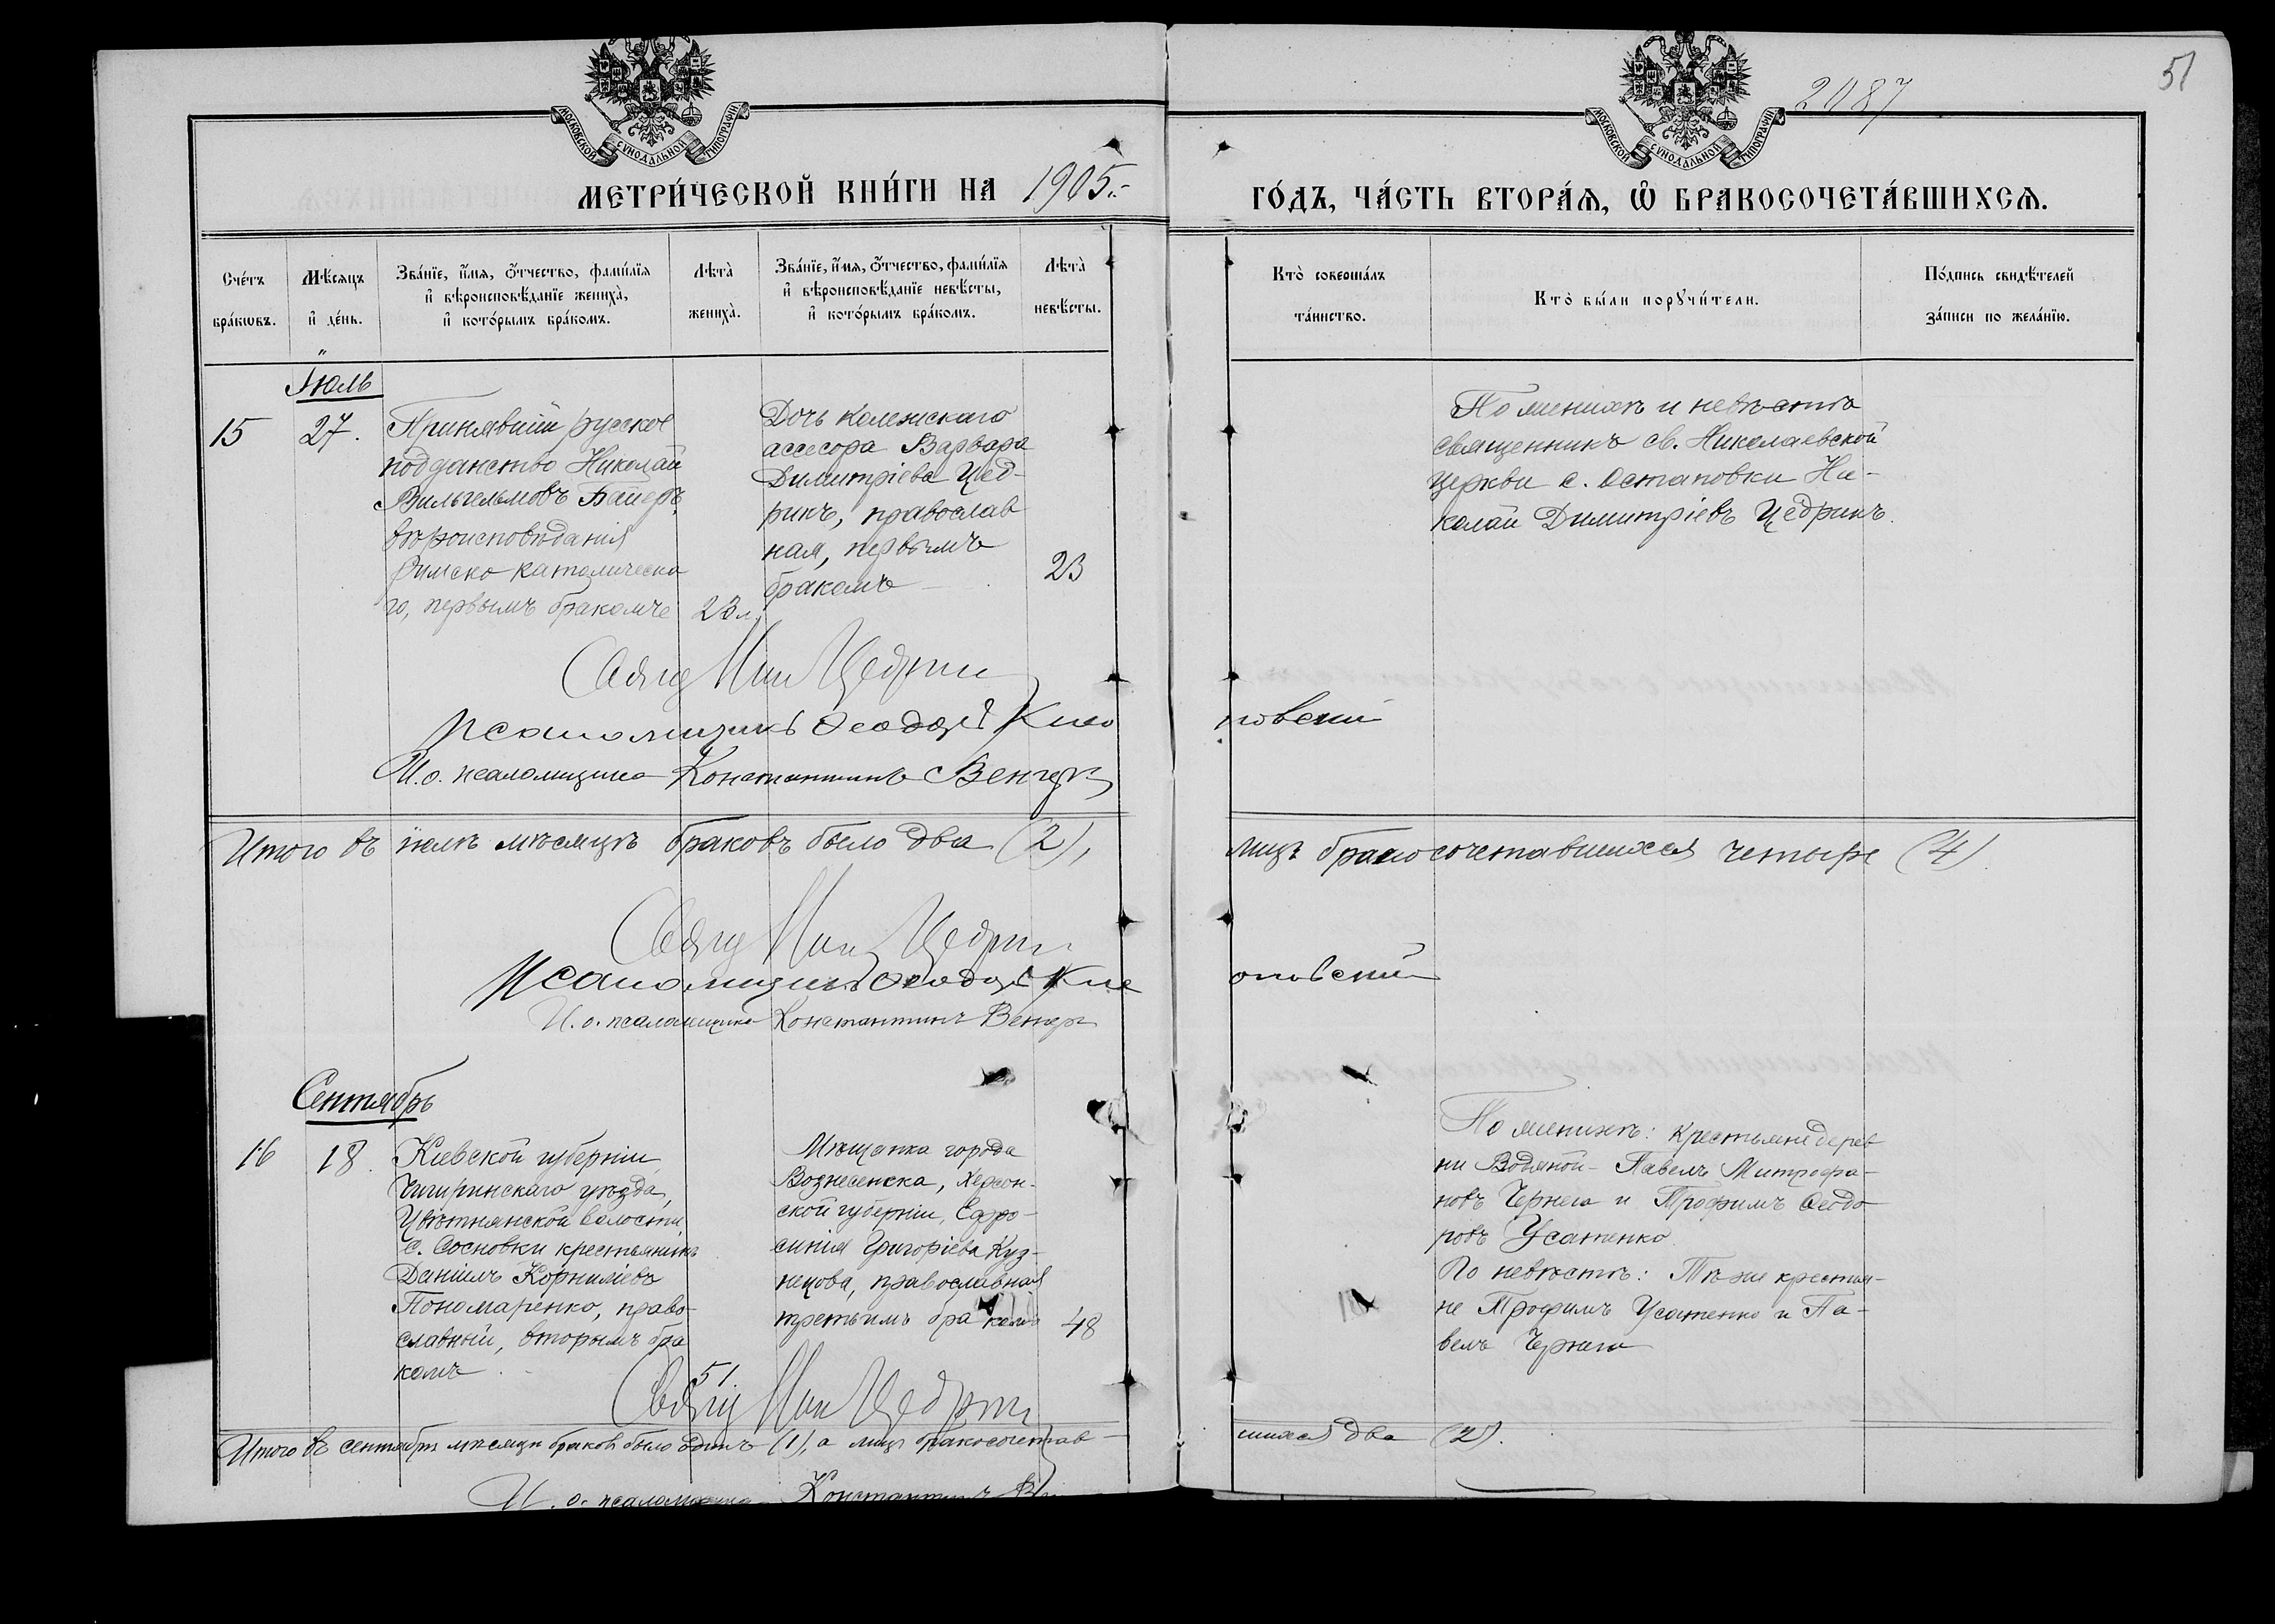 2087
51
МОСКОВСКОЙ СУНОДАЛЬНОЙ ТИПОГРАФІИ
МОСКОВСКОЙ СУНОДАЛЬНОЙ ТИПОГРАФІИ
МЕТРИ́ЧЕСКОЙ КНИ́ГИ НА 1905.-
ГО́ДЪ, ЧА́СТЬ ВТОРА́Ѧ, Ѡ҆ БРАКОСОЧЕТА́ВШИХСѦ.
Сче́тъ
бра́кѡвъ.
Мѣ́сяцъ
и҆ де́нь.
Зва́нїе, и҆́мя, ѻ҆́тчество, фами́лїя
и҆ вѣроисповѣ́данїе жениха̀,
и҆ кото́рымъ бра́комъ.
Лѣта̀
жениха̀.
Зва́нїе, и҆́мя, ѻ҆́тчество, фами́лїя
и҆ вѣроисповѣ́данїе невѣ́сты,
и҆ кото́рымъ бра́комъ.
Лѣта̀
невѣ́сты.
Кто̀ соверша́лъ
та́инство.
Кто̀ бы́ли порꙋчи́тели.
По́дпись свидѣ́телей
за́писи по жела́нїю.
Іюль
15
27.
Принявшій русское
подданство Николай
Вильгельмовъ Байеръ,
вѣроисповѣданія
Римско католическа
го, первымъ бракомъ
23 л.
Дочь колежскаго
ассесора Варвара
Димитріева Цед-
рикъ, православ
ная, первымъ
бракомъ
23
По женихѣ и невѣстѣ
священникъ св. Николаевской
церкви с. Остаповки Ни-
колай Димитріевъ Цедрикъ.
Свящ Ник Цедрик
Псаломщикъ Ѳеодосій
И. о. псаломщика Константинъ Венгеръ
Итого въ іюлѣ мѣсяцѣ браковъ было два (2),
лицъ бракосочетавшихся четыре (4).
Свящ Ник Цедрик
Псаломщикъ Ѳеодосій
И. о. псаломщика Константинъ Венгеръ
Сентябрь
16
18.
Кіевской губерніи,
Чигиринскаго уѣзда,
Цвѣтнянской волости
с. Сосновки крестьянинъ
Даніилъ Корниліевъ
Пономаренко, право-
славный, вторымъ бра
комъ
51.
Мѣщанка города
Вознесенска, Херсон-
ской губерніи, Ефро-
синія Григоріева Куз-
нецова, православная
третьимъ бракомъ
48
По женихѣ: крестьяне дерев
ни Водяной - Павелъ Митрофа-
новъ Чернега и Трофимъ Ѳеодо
ровъ Усатенко.
По невѣстѣ: Тѣ же крестья-
не Трофимъ Усатенко и Па-
велъ Чернега
Свящ Ник Цедрик
Итого въ сентябрѣ мѣсяцѣ браковъ было одинъ (1), а лицъ бракосочетав-
шихся два (2).
И. о. псаломщика Константинъ